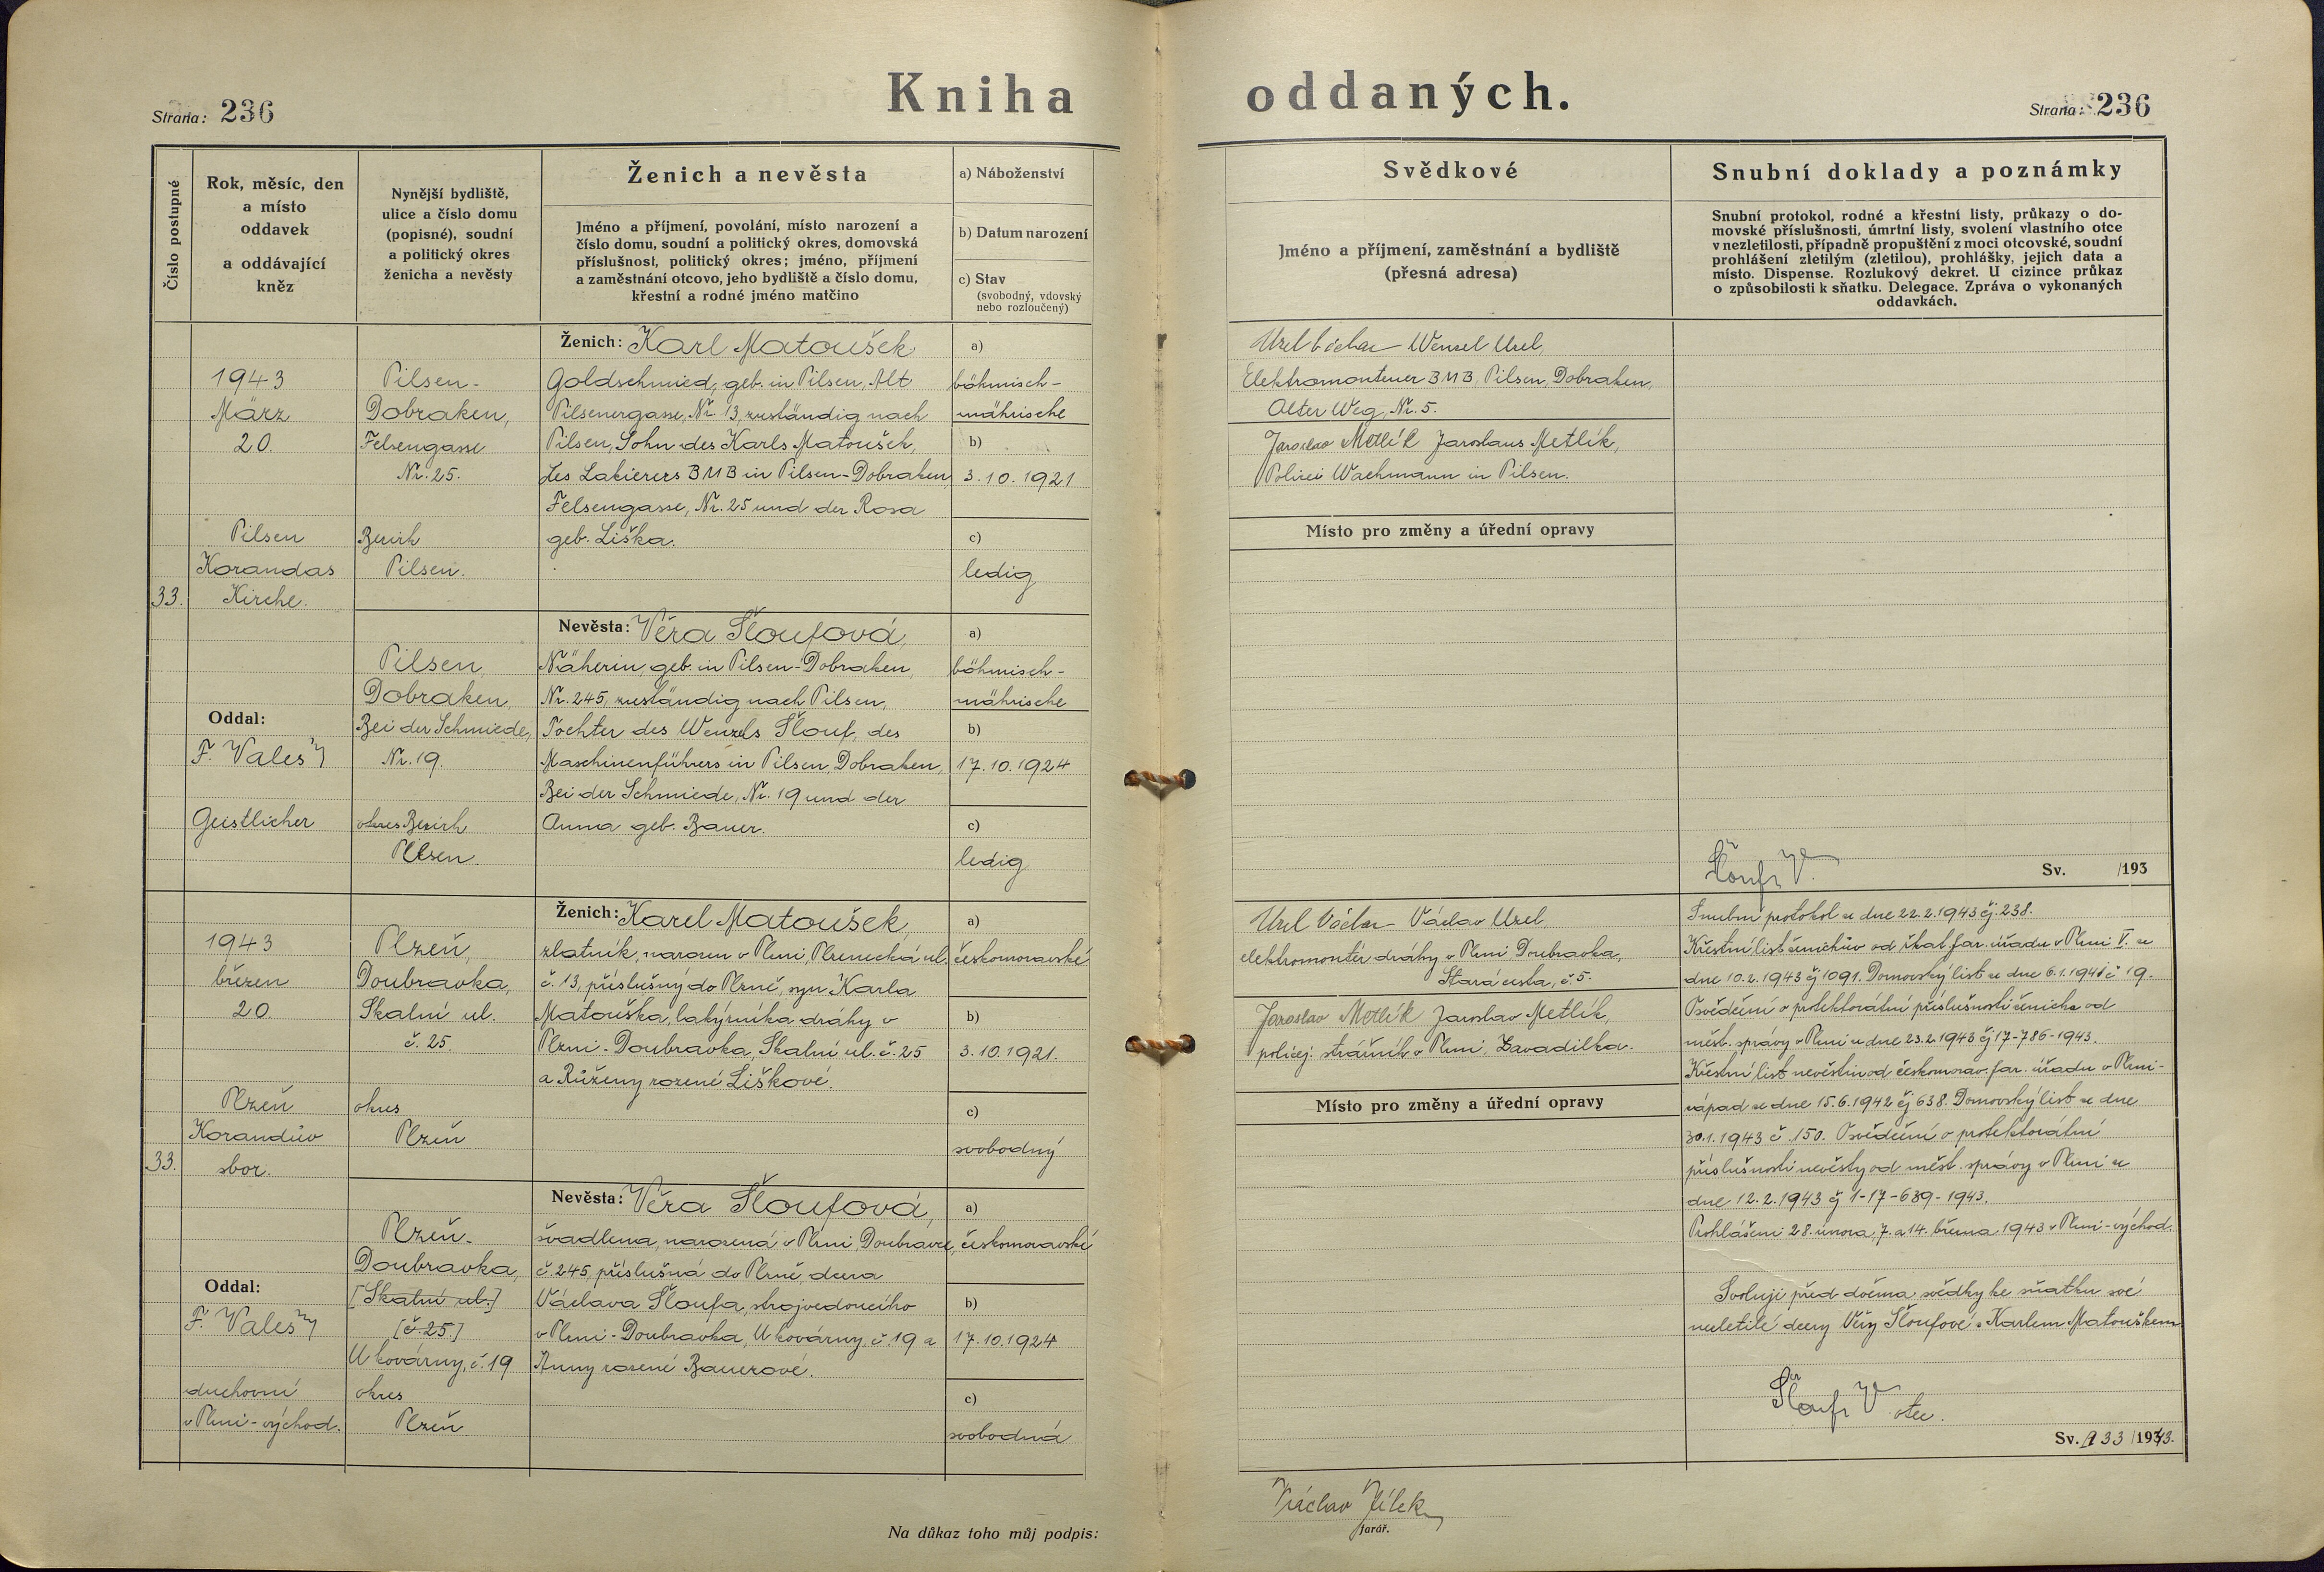 Kniha oddaných.
Strana: 236
Strana: 236
Číslo postupné
Rok, měsíc, den
a místo
oddavek
a oddávající
kněz
Nynější bydliště,
ulice a číslo domu
(popisné), soudní
a politický okres
ženicha a nevěsty
Ženich a nevěsta
Jméno a příjmení, povolání, místo narození a
číslo domu, soudní a politický okres, domovská
příslušnost, politický okres; jméno, příjmení
a zaměstnání otcovo, jeho bydliště a číslo domu,
křestní a rodné jméno matčino
a) Náboženství
b) Datum narození
c) Stav
(svobodný, vdovský
nebo rozloučený)
Svědkové
Jméno a příjmení, zaměstnání a bydliště
(přesná adresa)
Snubní doklady a poznámky
Snubní protokol, rodné a křestní listy, průkazy o do-
movské příslušnosti, úmrtní listy, svolení vlastního otce
v nezletilosti, případně propuštění z moci otcovské, soudní
prohlášení zletilým (zletilou), prohlášky, jejich data a
místo. Dispense. Rozlukový dekret. U cizince průkaz
o způsobilosti k sňatku. Delegace. Zpráva o vykonaných
oddavkách.
33.
1943
März
20.
Pilsen
Korandas
Kirche.
Oddal:
F. Valeš
Geistlicher
Pilsen-
Dobraken,
Felsengasse
Nr. 25.
Bezirk
Pilsen.
Ženich: Karl Matoušek
Goldschmied, geb. in Pilsen, Alt
Pilsenergasse, Nr. 13, zuständig nach
Pilsen, Sohn des Karls Matoušek,
des Lakierers BMB in Pilsen-Dobraken,
Felsengasse, Nr. 25 und der Rosa
geb. Liška.
a)
böhmisch-
mährische
b)
3.10.1921
c)
ledig
Pilsen,
Dobraken,
Bei der Schmiede,
Nr. 19.
okres Bezirk
Pilsen.
Nevěsta: Věra Šloufová,
Näherin, geb. in Pilsen-Dobraken,
Nr. 245, zuständig nach Pilsen,
Tochter des Wenzels Šlouf, des
Maschinenführers in Pilsen, Dobraken,
Bei der Schmiede, Nr. 19 und der
Anna geb. Bauer.
a)
böhmisch-
mährische
b)
17.10.1924
c)
ledig
Uzel Václav Wenzel Uzel,
Elektromonteuer BMB, Pilsen, Dobraken,
Alter Weg, Nr. 5.
Jaroslav Metlík Jaroslaus Metlík,
Polizei Wachmann in Pilsen.
Místo pro změny a úřední opravy
Šlouf V.
Sv. /193
33.
1943
březen
20.
Plzeň
Korandův
sbor.
Oddal:
F. Valeš
duchovní
v Plzni-východ.
Plzeň,
Doubravka,
Skalní ul.
č. 25.
okres
Plzeň
Ženich: Karel Matoušek,
zlatník, narozen v Plzni, Plzenecká ul.
č. 13, příslušný do Plzně, syn Karla
Matouška, lakýrníka dráhy v
Plzni-Doubravka, Skalní ul. č. 25
a Růženy rozené Liškové.
a)
českomoravské
b)
3.10.1921.
c)
svobodný
Plzeň-
Doubravka,
[Skalní ul.]
[č. 25.]
U kovárny, č. 19
okres
Plzeň
Nevěsta: Věra Šloufová,
švadlena, narozená v Plzni, Doubravce,
č. 245, příslušná do Plzně, dcera
Václava Šloufa, strojvedoucího
v Plzni-Doubravka, U kovárny, č. 19 a
Anny rozené Bauerové.
a)
českomoravské
b)
17.10.1924
c)
svobodná
Uzel Václav Václav Uzel,
elektromontér dráhy v Plzni Doubravka,
Stará cesta, č. 5.
Jaroslav Metlík Jaroslav Metlík,
policej. strážník v Plzni, Zavadilka.
Místo pro změny a úřední opravy
Snubní protokol ze dne 22.2.1943 čj. 238.
Křestní list ženichův od řkat. far. úřadu v Plzni V. ze
dne 10.2.1943 čj 1091. Domovský list ze dne 6.1.1941 č 19.
Osvědčení o protektorátní příslušnosti ženicha od
měst. správy v Plzni ze dne 23.2.1943 čj 17-786-1943.
Křestní list nevěstin od českomorav. far. úřadu v Plzni-
západ ze dne 15.6.1942 čj 638. Domovský list ze dne
30.1.1943 č. 150. Osvědčení o protektorátní
příslušnosti nevěsty od měst. správy v Plzni ze
dne 12.2.1943 čj 1-17-689-1943.
Prohlášeni 28. února, 7. a 14. března 1943 v Plzni-východ.
Svoluji před dvěma svědky ke sňatku své
nezletilé dcery Věry Šloufové s Karlem Matouškem
Šlouf V. otec.
Sv. A 33 /1943.
Na důkaz toho můj podpis:
Václav Jílek
farář.